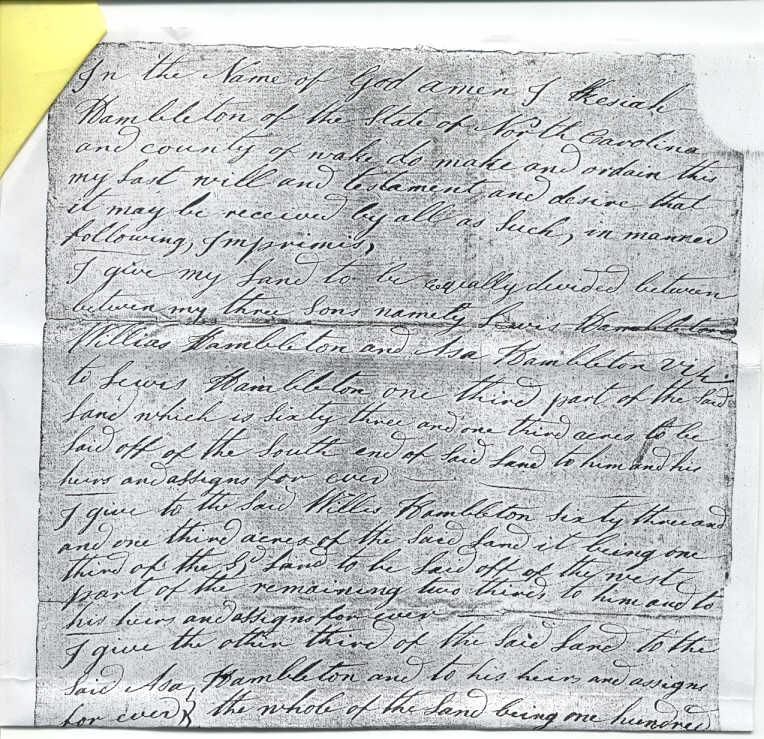 In the Name of God amen I Kesiah
Hambleton of the State of North Carolina
and county of wake do make and ordain this
my Last will and testament, and desire that
it may be received by all as Such, in manner
following, Imprimis,
I give my Land to be equally divided between
between my three Sons namely Lewis Hambleton
Willias Hambleton and Asa Hambleton Viz
to Lewis Hambleton one third part of the said
Land which is sixty three and one third acres to be
Laid off of the South end of Said Land to him and his
heirs and assigns for ever
I give to the Said Willis Hambleton sixty three and
and one third acres of the Said Land it being one
third of the Sd Land to be Laid off of the west
part of the remaining two thirds to him and to
his heirs and assigns for ever
I give the other third of the Said Land to the
Said Asa Hambleton and to his heirs and assigns
for ever the whole of the Land being one hundred